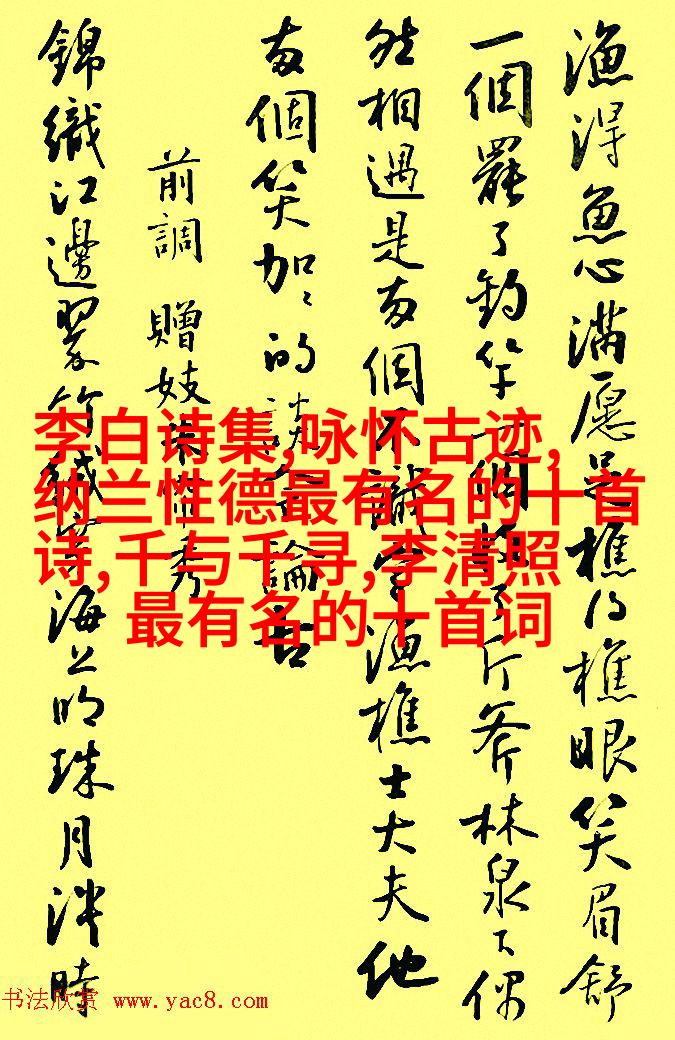 漁得魚心滿愿足樵得樵眼笑眉舒
一個罷了釣竿一個收了斤斧林泉下偶
然相遇是两個不識字漁樵士大夫他
两個笑加々的談今論古
前調 贈妓珠簾秀
錦織江邊翠竹絨穿海上明珠月淡時
李白诗集,咏怀古迹,
纳兰性德最有名的十首
诗,千与千寻,李清照
最有名的十首词
书法欣赏 www.yac8.com